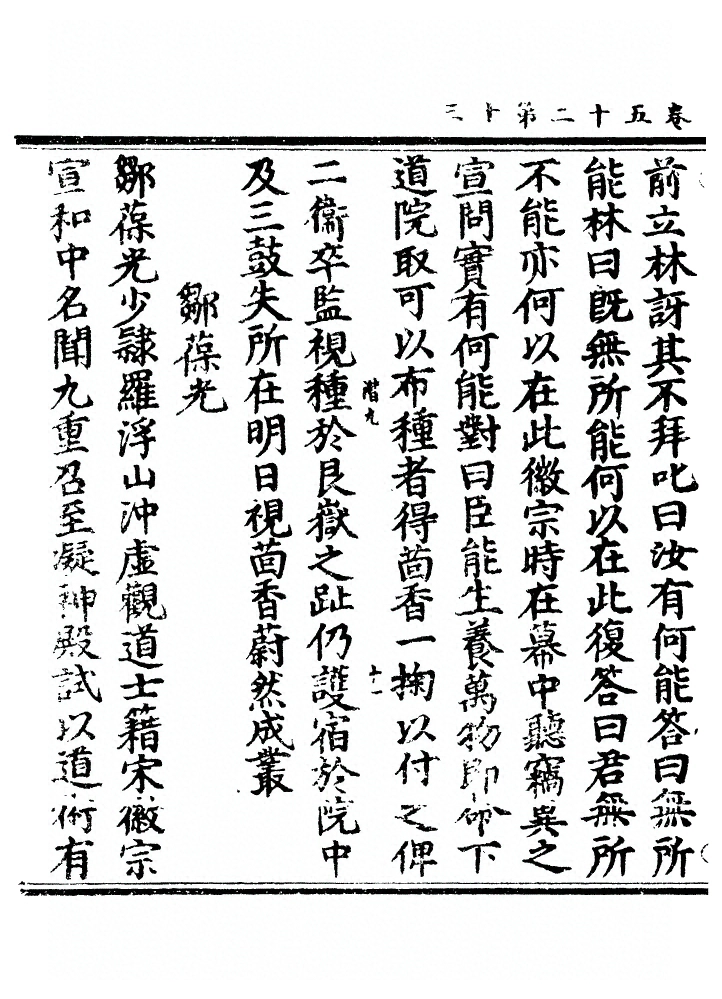 卷五十二第十三
前立林訝其不拜叱曰汝有何能答曰無所
能林曰既無所能何以在此復答曰君無所
不能亦何以在此徽宗時在幕中聽竊異之
宣問實有何能對曰臣能生養萬物即命下
道院取可以布種者得茴香一掬以付之俾
二衞卒監視種於艮嶽之趾仍護宿於院中
及三鼓失所在明日視茴香蔚然成叢
鄒葆光
鄒葆光少隸羅浮山沖虛觀道士籍宋徽宗
宣和中名聞九重召至凝神殿試以道術有
階九
十一